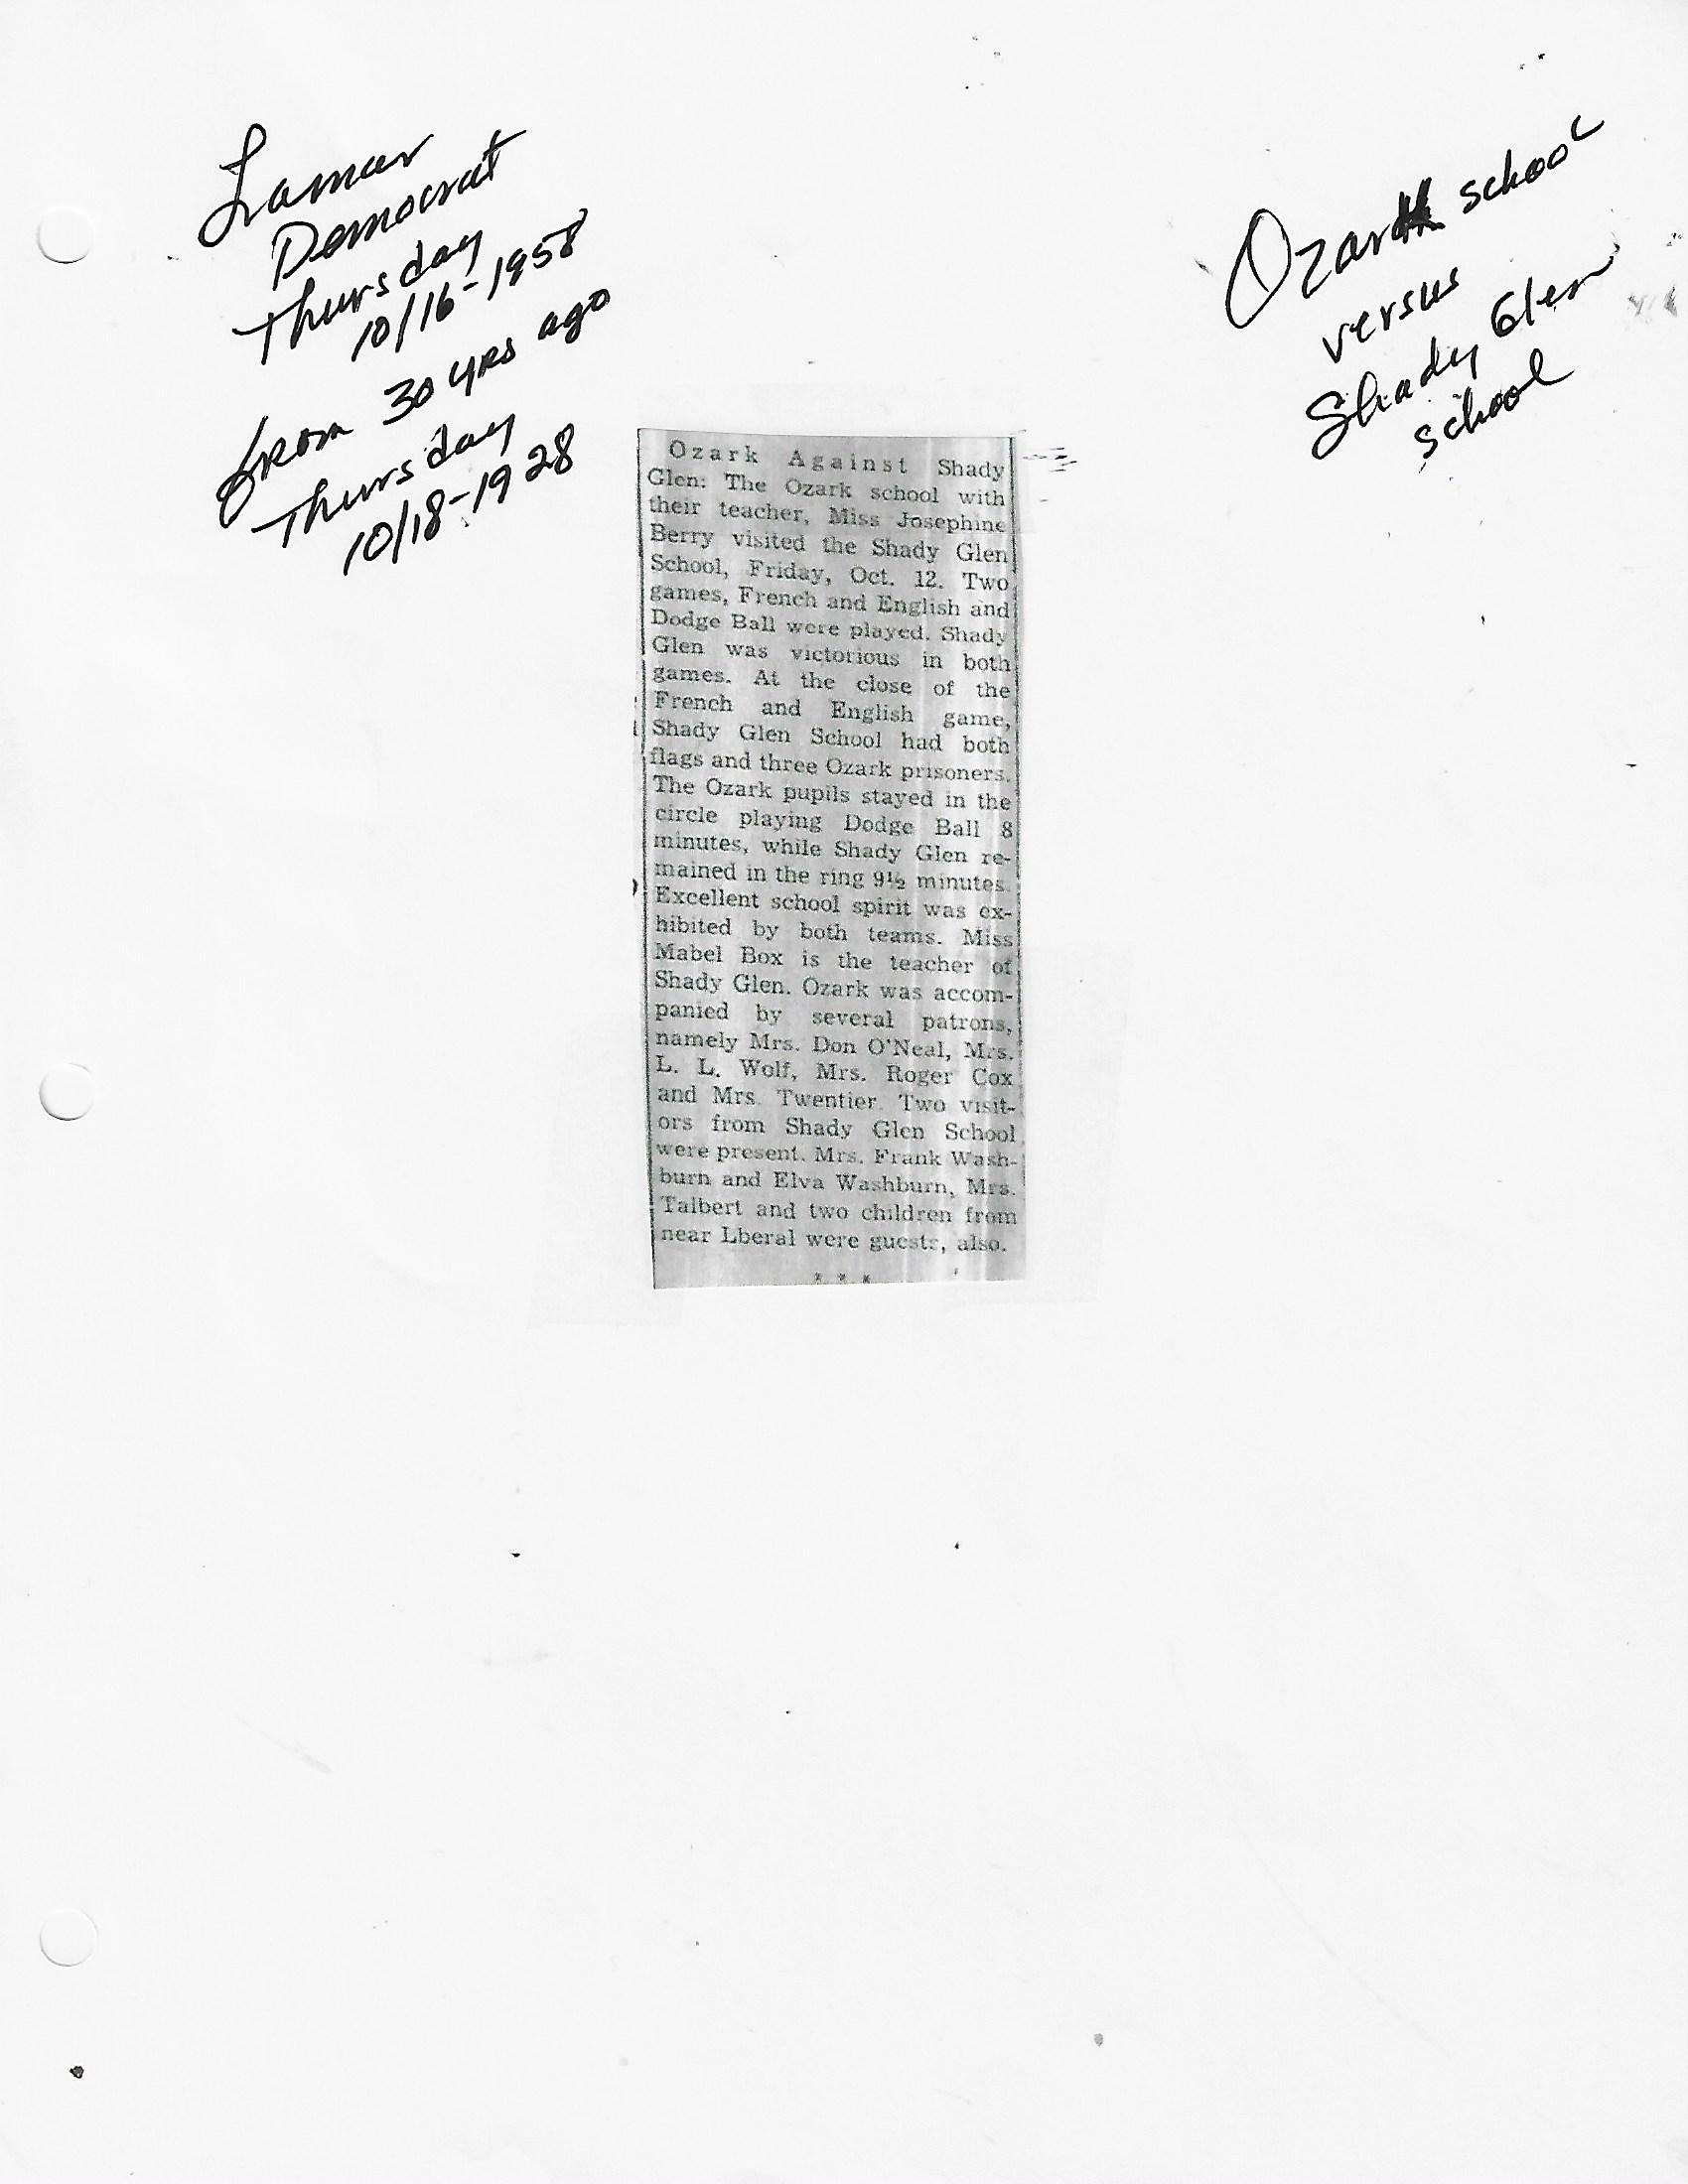 Lamar
Democrat
Thursday
10/16-1958
from 30 yrs ago
Thursday
10/18-1928
Ozark school
versus
Shady Glen
school
Ozark Against Shady
Glen: The Ozark school with
their teacher, Miss Josephine
Berry visited the Shady Glen
School, Friday, Oct. 12. Two
games, French and English and
Dodge Ball were played. Shady
Glen was victorious in both
games. At the close of the
French and English game,
Shady Glen School had both
flags and three Ozark prisoners.
The Ozark pupils stayed in the
circle playing Dodge Ball 8
minutes, while Shady Glen re-
mained in the ring 9½ minutes.
Excellent school spirit was ex-
hibited by both teams. Miss
Mabel Box is the teacher of
Shady Glen. Ozark was accom-
panied by several patrons,
namely Mrs. Don O'Neal, Mrs.
L. L. Wolf, Mrs. Roger Cox
and Mrs. Twentier. Two visit-
ors from Shady Glen School
were present. Mrs. Frank Wash-
burn and Elva Washburn, Mrs.
Talbert and two children from
near Lberal were guests, also.
* * *